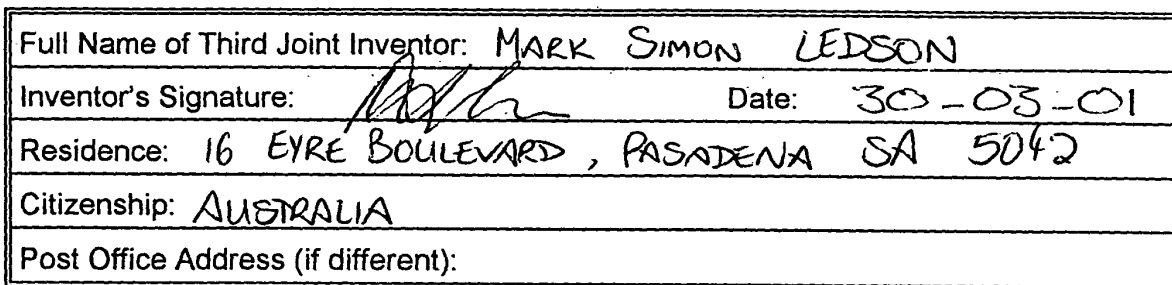 Full Name of Third Joint Inventor: MARK SIMON LEDSON
Inventor's Signature: Date: 30-03-01
Residence: 16 EYRE BOULEVARD, PASADENA SA 5042
Citizenship: AUSTRALIA
Post Office Address (if different):